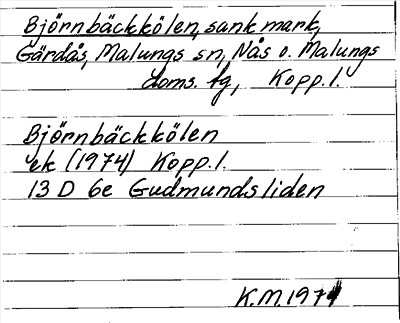 Björnbäckkölen, sank mark,
Gärdås, Malungs sn, Nås o. Malungs
doms. fg, Kopp. l.
Björnbäckkölen
ek (1974) Kopp. l.
13 D 6e Gudmundsliden
K.M. 1974